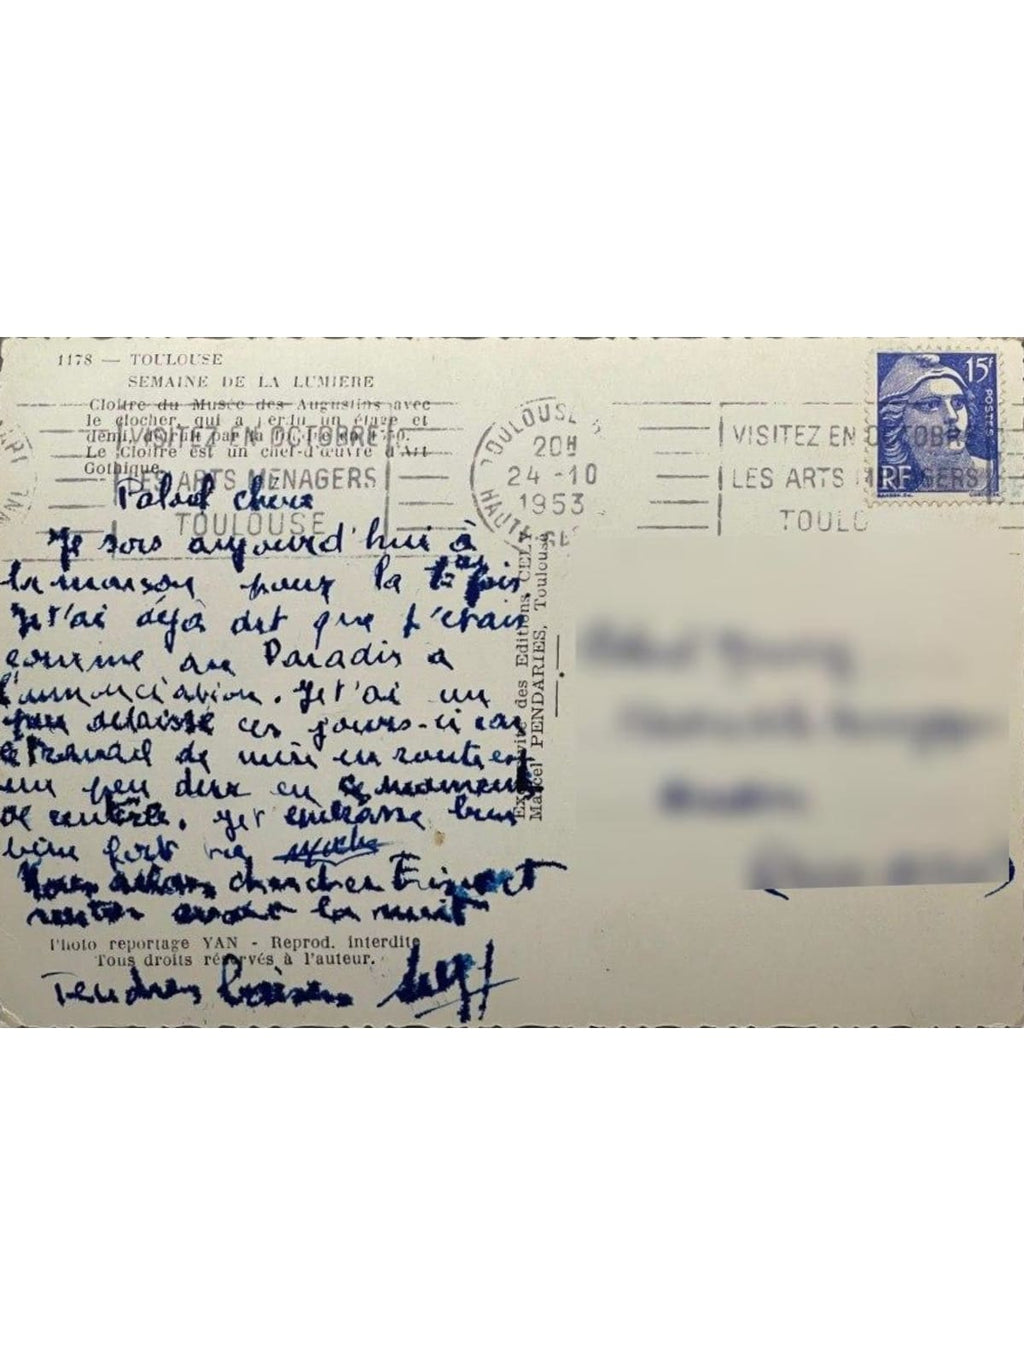 1178 — TOULOUSE
SEMAINE DE LA LUMIERE
Cloître du Musée des Augustins avec
le clocher, qui a perdu un étage et
demi,
Le Cloître est un chef-d'œuvre d'Art
Gothique.
VISITEZ EN OCTOBRE
LES ARTS MENAGERS
TOULOUSE
TOULOUSE
20H
24 -10
1953
HAUTE
VISITEZ EN OCTOBR
LES ARTS MENAGERS
TOULO
15F
POSTES
RF
chéri
Je sors aujourd'hui à
la maison pour la 1ère fois
Je t'ai déjà dit que c'était
comme au Paradis à
l'annonciation. Je t'ai un
peu délaissé ces jours-ci car
le travail de mise en route est
un peu dur en ce moment
de rentrée. Je t' embrasse bien
bien fort
Nous allons chercher et
rentrer avant la nuit
Photo reportage YAN - Reprod. interdite
Tous droits réservés à l'auteur.
Tendres baisers
Exclusivité des Editions CELY
Marcel PENDARIES, Toulouse